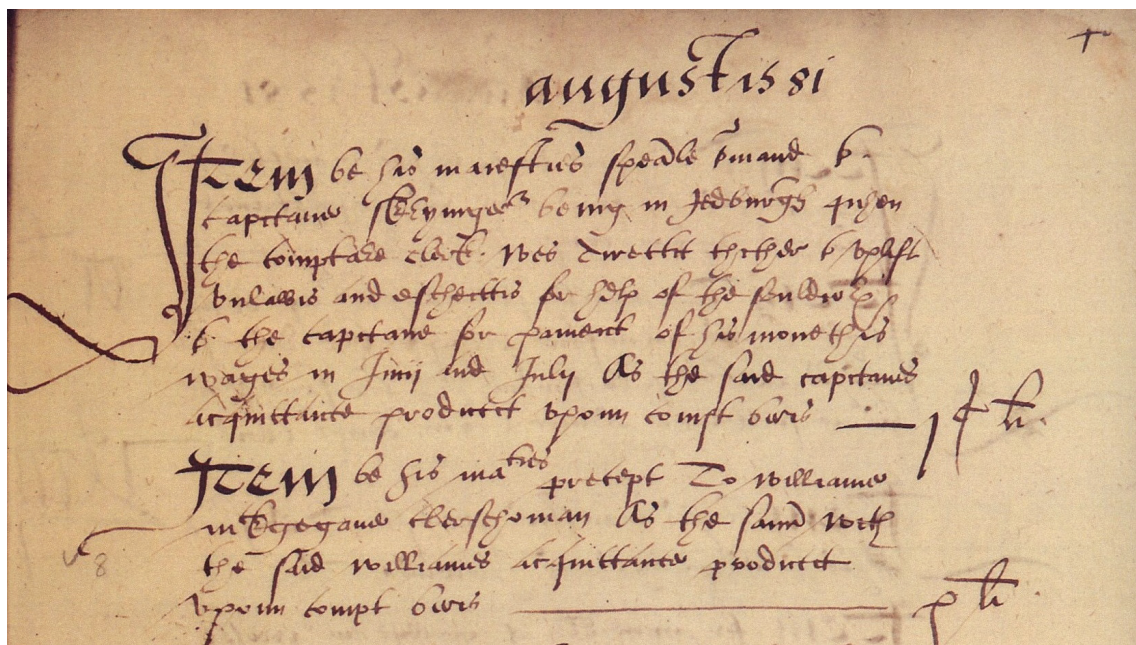 august 1581
Item be his maiesties speale cmand to
capitane skrymgeor being in Jedburgh quhen
the comptare clerk wes direttit thither to vplift
vnlawis and eschettis for help of the suldiors
to the capitane for pament of his monethis
wages in Junij and Julij As the said capitanes
acquittance producit vpoun compt beris j c li.
Item be his maties precept To williame
the samin with
the said williames acquittance producit
vpoun compt beris x li